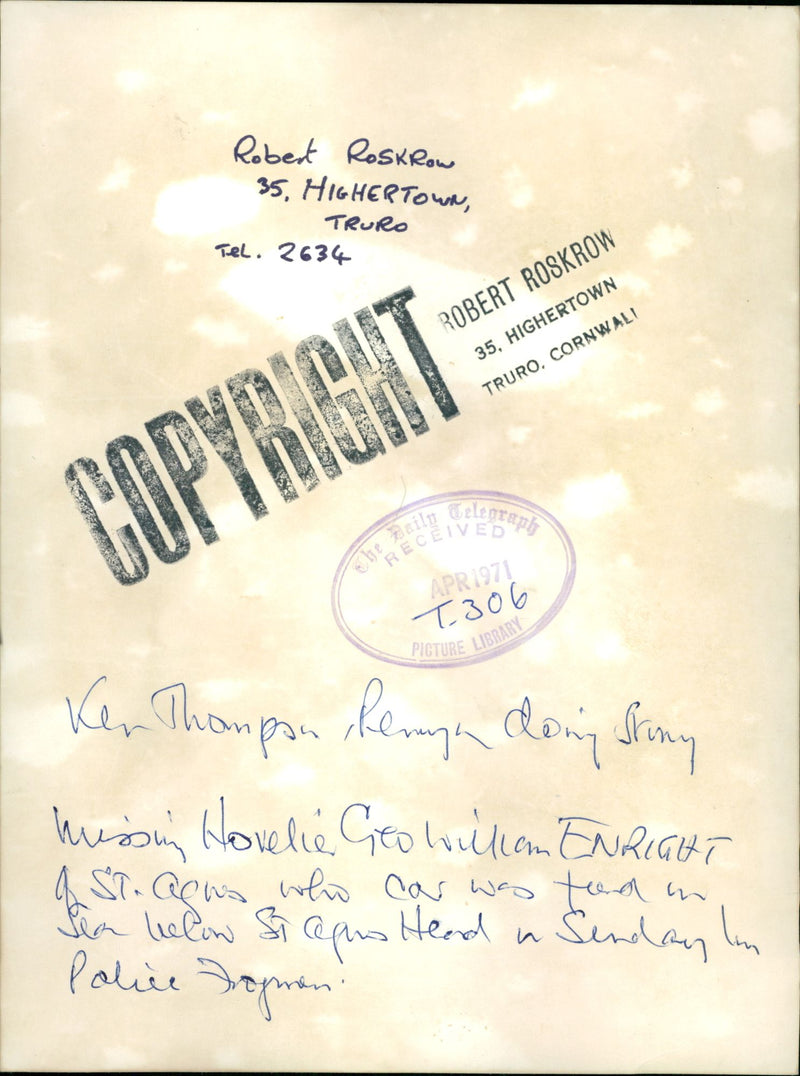 Robert Roskrow
35, HIGHERTOWN,
TRURO
Tel. 2634
COPYRIGHT
ROBERT ROSKROW
35, HIGHERTOWN
TRURO, CORNWALL
The Daily Telegraph
RECEIVED
APR 1971
T.306
PICTURE LIBRARY
Ken Thompson doing story
Missing Hotelier Geo William ENRIGHT
of ST. Agnes who car was found in
Sea below St Agnes Head on Sunday by
Police Frogmen.